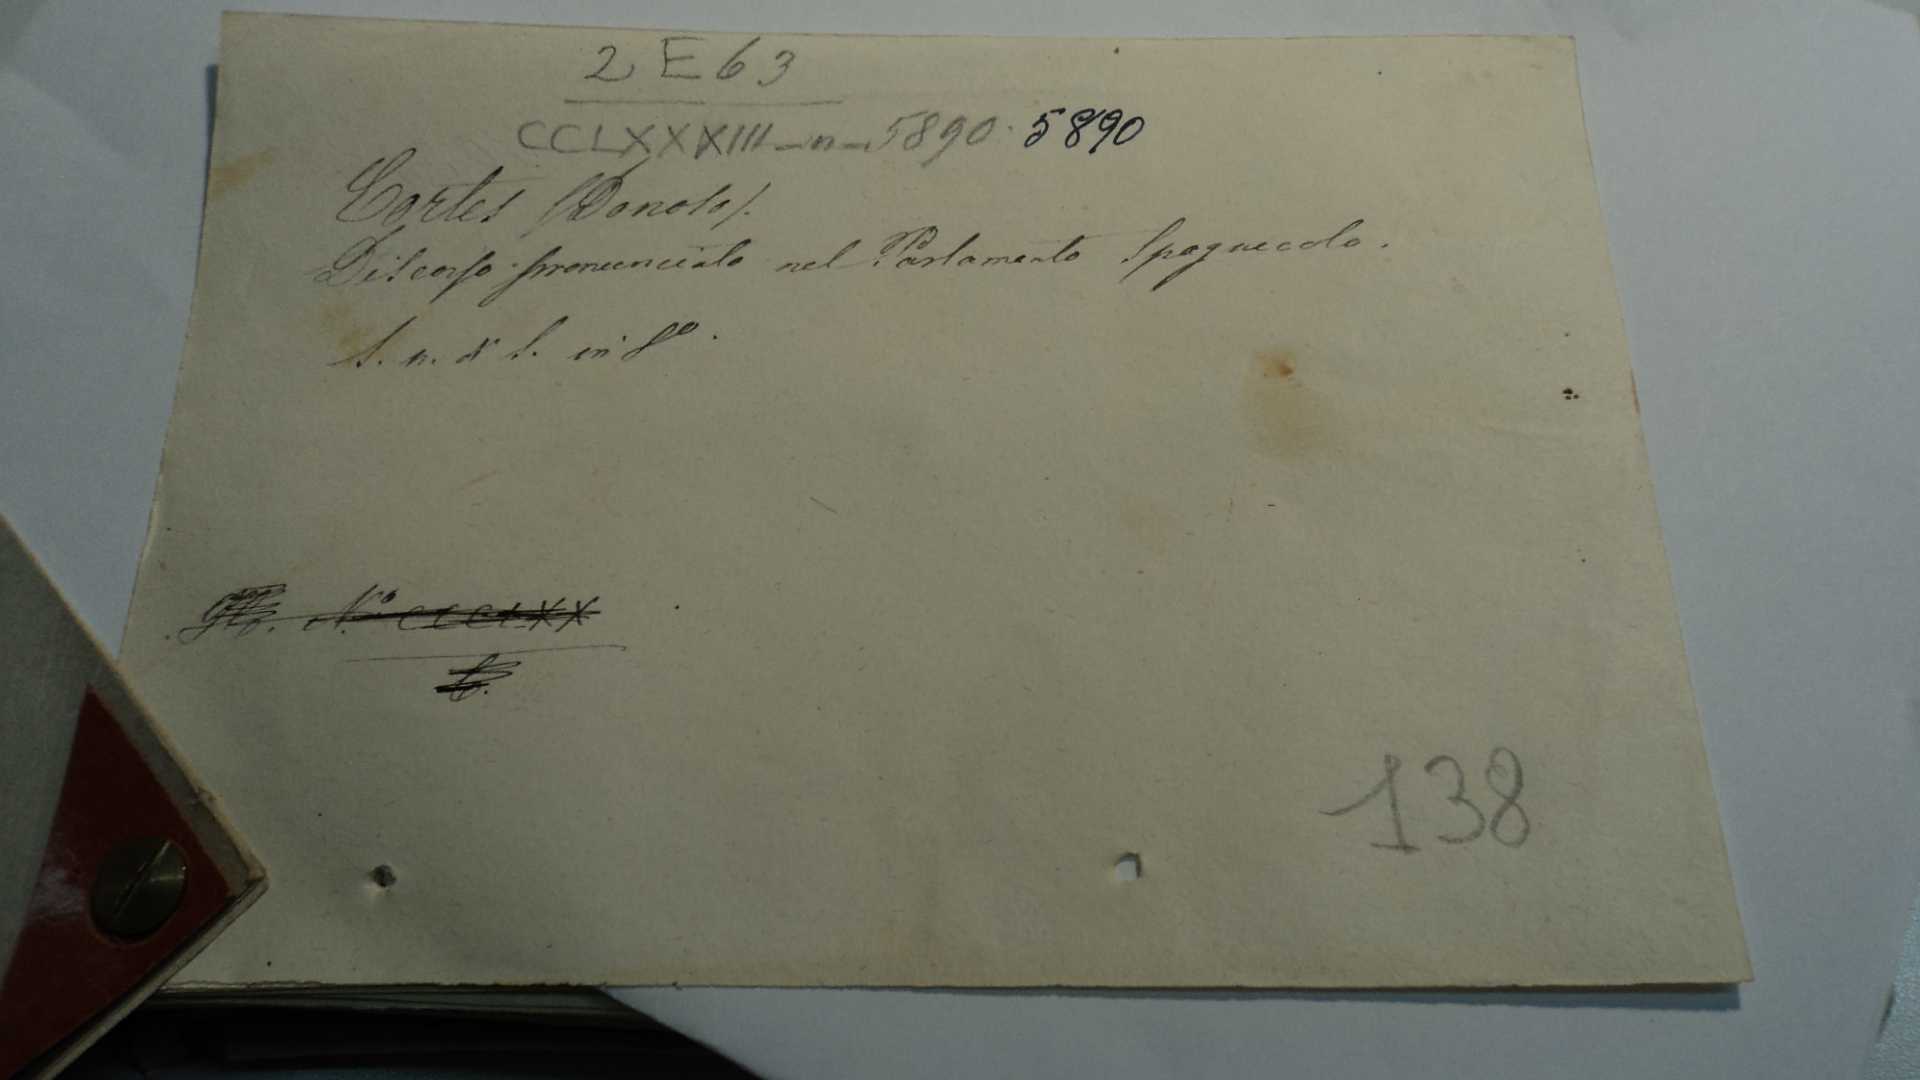 2 E 63
CCLXXXIII - n - 5890. 5890
Cortes (Donoso).
Discorso pronunciato nel Parlamento Spagnuolo.
S. n. di S. in 8º.
Nº CCCLXX
138